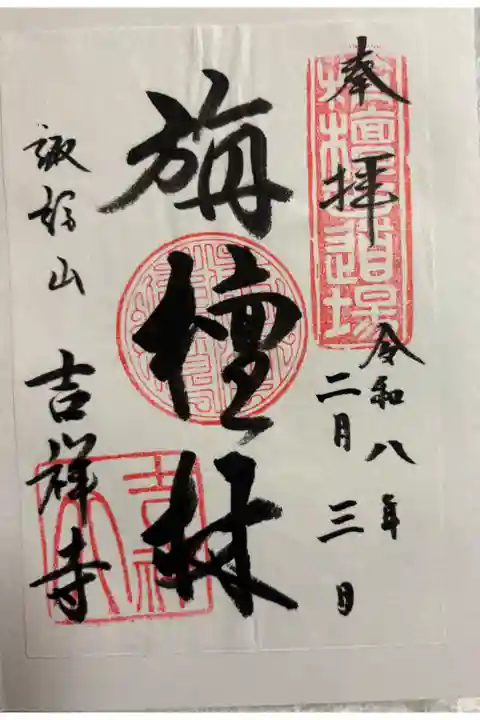 奉拝
道場
令和八年
二月三日
旃檀林
諏訪山 吉祥寺